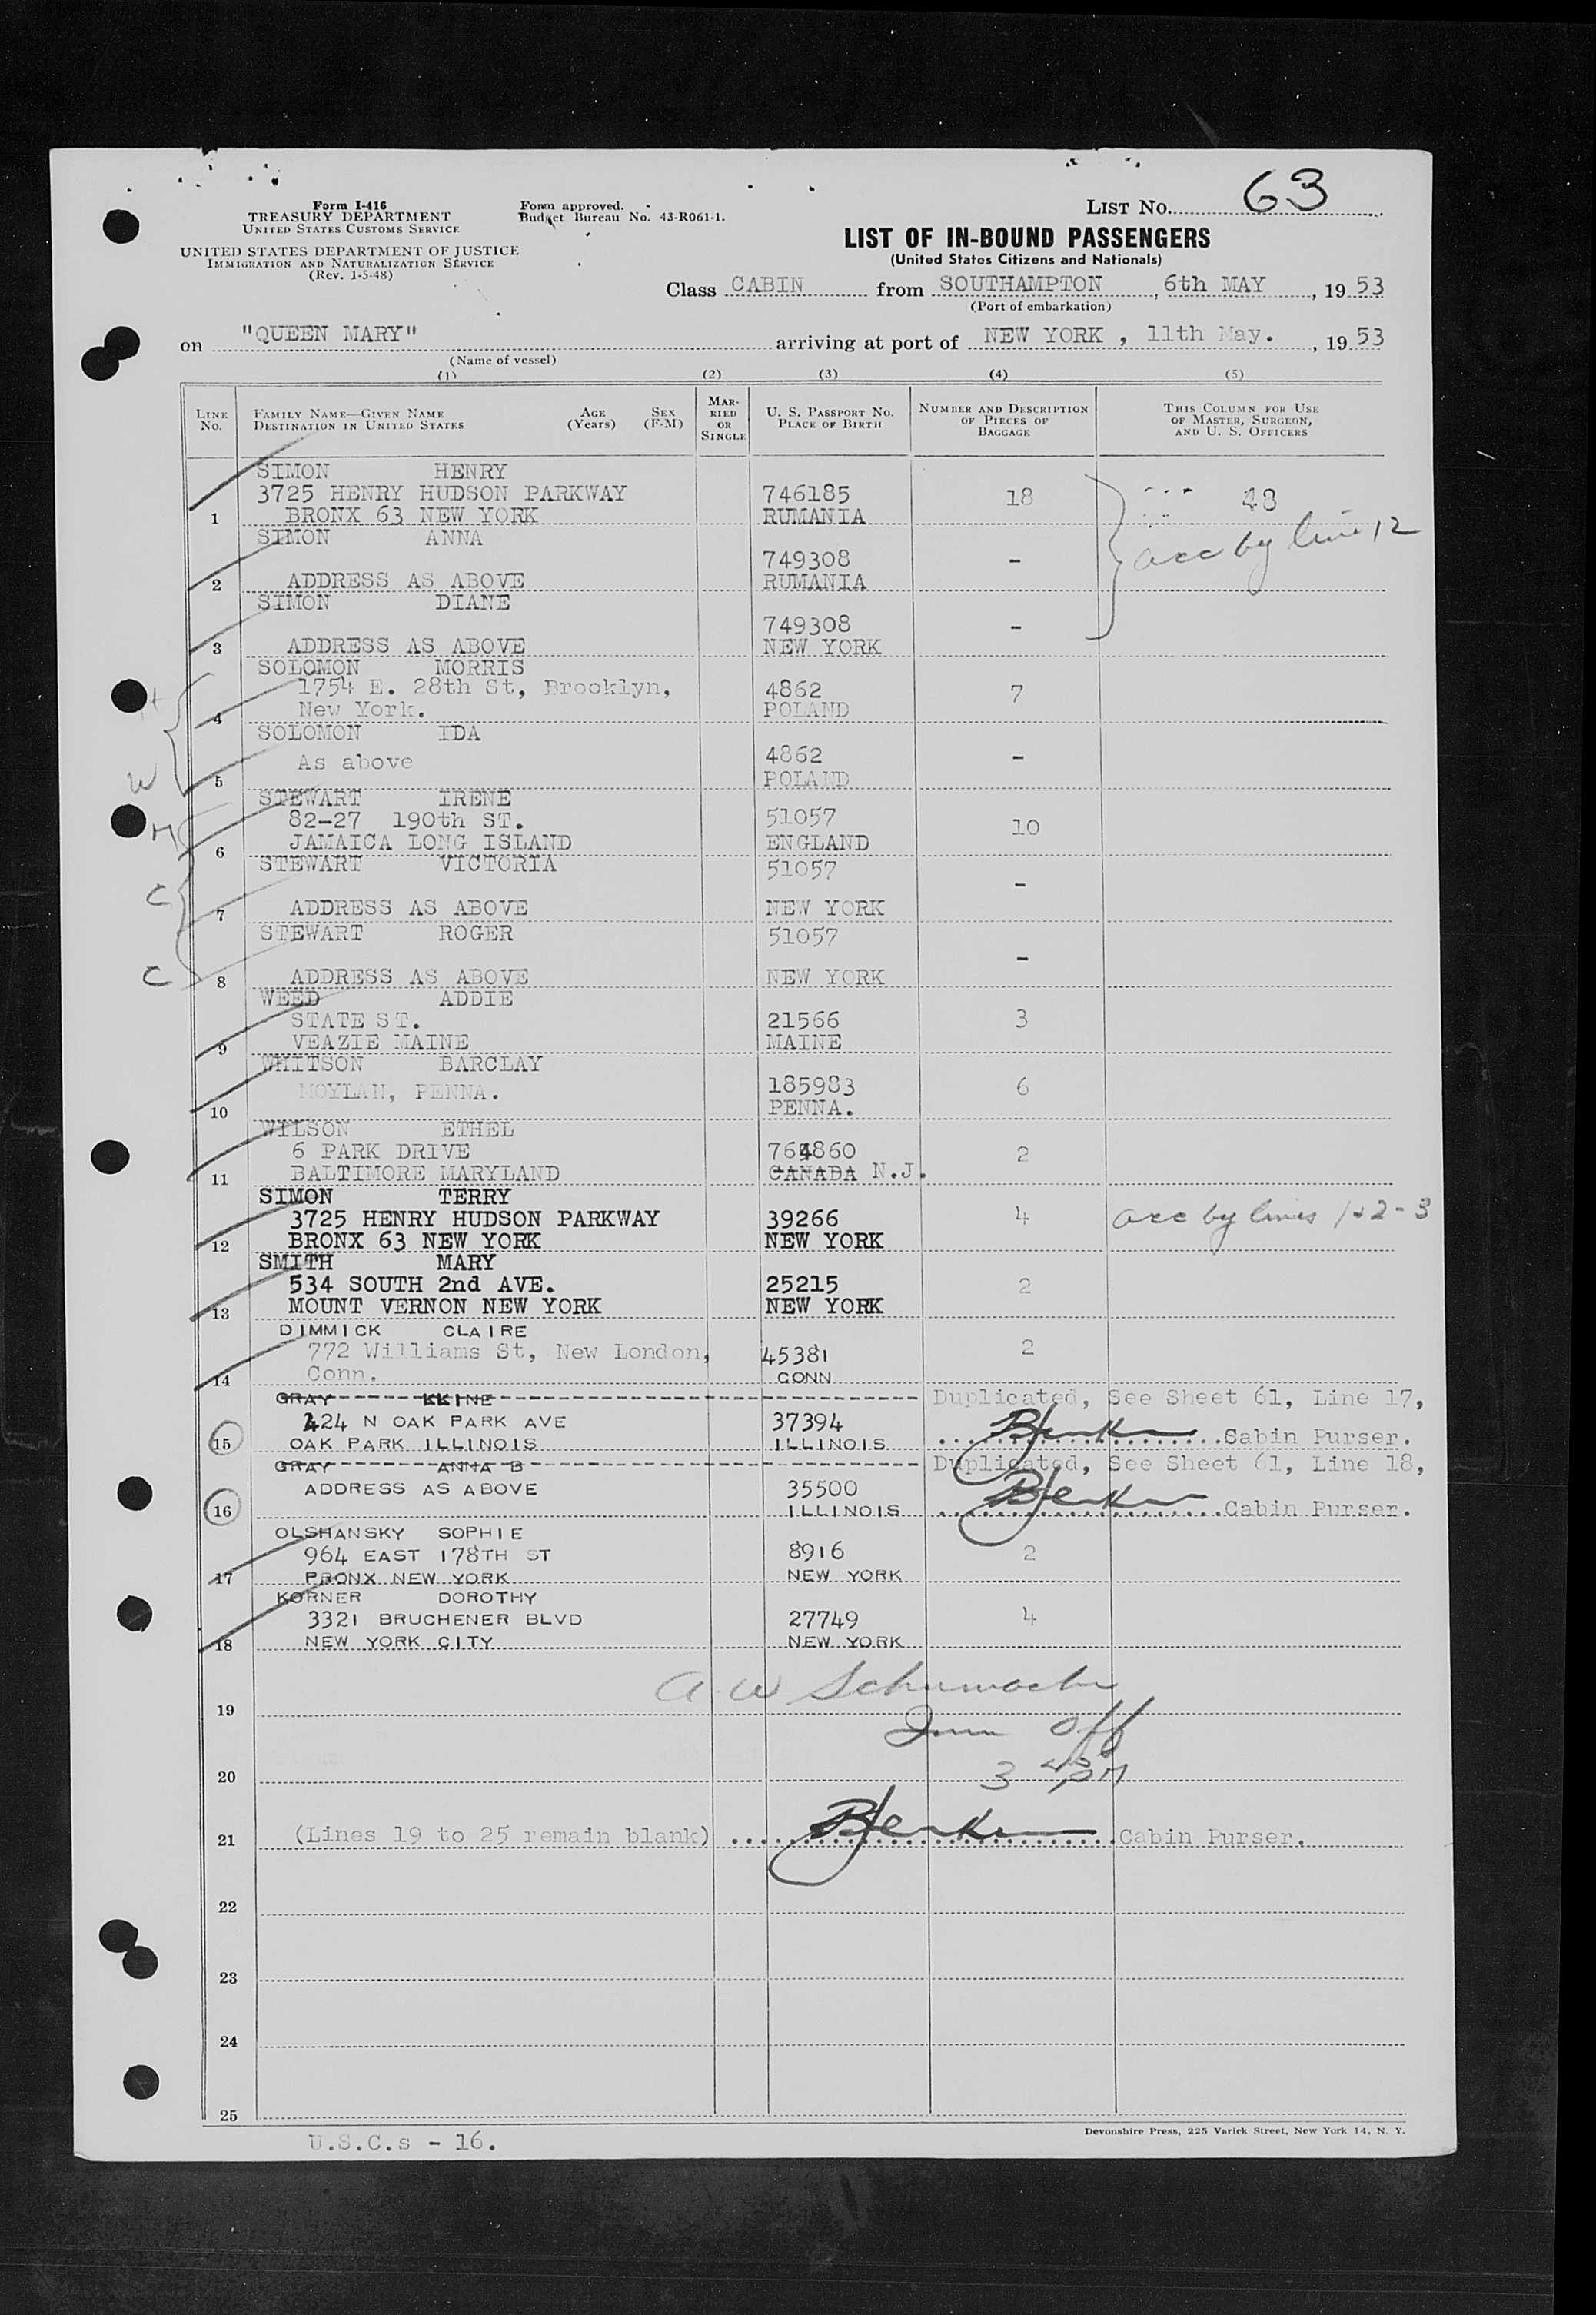 Form I-416
TREASURY DEPARTMENT
UNITED STATES CUSTOMS SERVICE
UNITED STATES DEPARTMENT OF JUSTICE
IMMIGRATION AND NATURALIZATION SERVICE
(Rev. 1-5-48)
Form approved.
Budget Bureau No. 43-R061-1.
LIST No. 63
LIST OF IN-BOUND PASSENGERS
(United States Citizens and Nationals)
Class CABIN from SOUTHAMPTON, 6th MAY, 19 53
(Port of embarkation)
on "QUEEN MARY" arriving at port of NEW YORK, 11th May., 19 53
(Name of vessel)
(1) (2) (3) (4) (5)
LINE No. FAMILY NAME—GIVEN NAME DESTINATION IN UNITED STATES AGE (Years) SEX (F-M) MARRIED OR SINGLE U. S. PASSPORT NO. PLACE OF BIRTH NUMBER AND DESCRIPTION OF PIECES OF BAGGAGE THIS COLUMN FOR USE OF MASTER, SURGEON, AND U. S. OFFICERS
SIMON HENRY
3725 HENRY HUDSON PARKWAY 746185 18 48
1 BRONX 63 NEW YORK RUMANIA
acc by line 12
SIMON ANNA
749308 -
2 ADDRESS AS ABOVE RUMANIA
SIMON DIANE
749308 -
3 ADDRESS AS ABOVE NEW YORK
SOLOMON MORRIS
1754 E. 28th St, Brooklyn, 4862 7
4 New York. POLAND
SOLOMON IDA
As above 4862 -
W 5 POLAND
STEWART IRENE
82-27 190th ST. 51057 10
6 JAMAICA LONG ISLAND ENGLAND
STEWART VICTORIA 51057
C -
7 ADDRESS AS ABOVE NEW YORK
STEWART ROGER 51057
-
C 8 ADDRESS AS ABOVE NEW YORK
WEED ADDIE
STATE ST. 21566 3
9 VEAZIE MAINE MAINE
WHITSON BARCLAY
MOYLAN, PENNA. 185983 6
10 PENNA.
WILSON ETHEL
6 PARK DRIVE 764860 2
11 BALTIMORE MARYLAND CANADA N.J.
SIMON TERRY
3725 HENRY HUDSON PARKWAY 39266 4 acc by lines 1+2-3
12 BRONX 63 NEW YORK NEW YORK
SMITH MARY
534 SOUTH 2nd AVE. 25215 2
13 MOUNT VERNON NEW YORK NEW YORK
DIMMICK CLAIRE
772 Williams St, New London, 45381 2
14 Conn. CONN
GRAY KKINE Duplicated, See Sheet 61, Line 17,
424 N OAK PARK AVE 37394
15 OAK PARK ILLINOIS ILLINOIS Cabin Purser.
GRAY ANNA B Duplicated, See Sheet 61, Line 18,
ADDRESS AS ABOVE 35500
16 ILLINOIS Cabin Purser.
OLSHANSKY SOPHIE
964 EAST 178TH ST 8916 2
17 BRONX NEW YORK NEW YORK
KORNER DOROTHY
3321 BRUCHENER BLVD 27749 4
18 NEW YORK CITY NEW YORK
A W Schumacher
19
Imm Off
20
21 (Lines 19 to 25 remain blank) Cabin Purser.
22
23
24
25
U.S.C.s - 16.
Devonshire Press, 225 Varick Street, New York 14, N. Y.